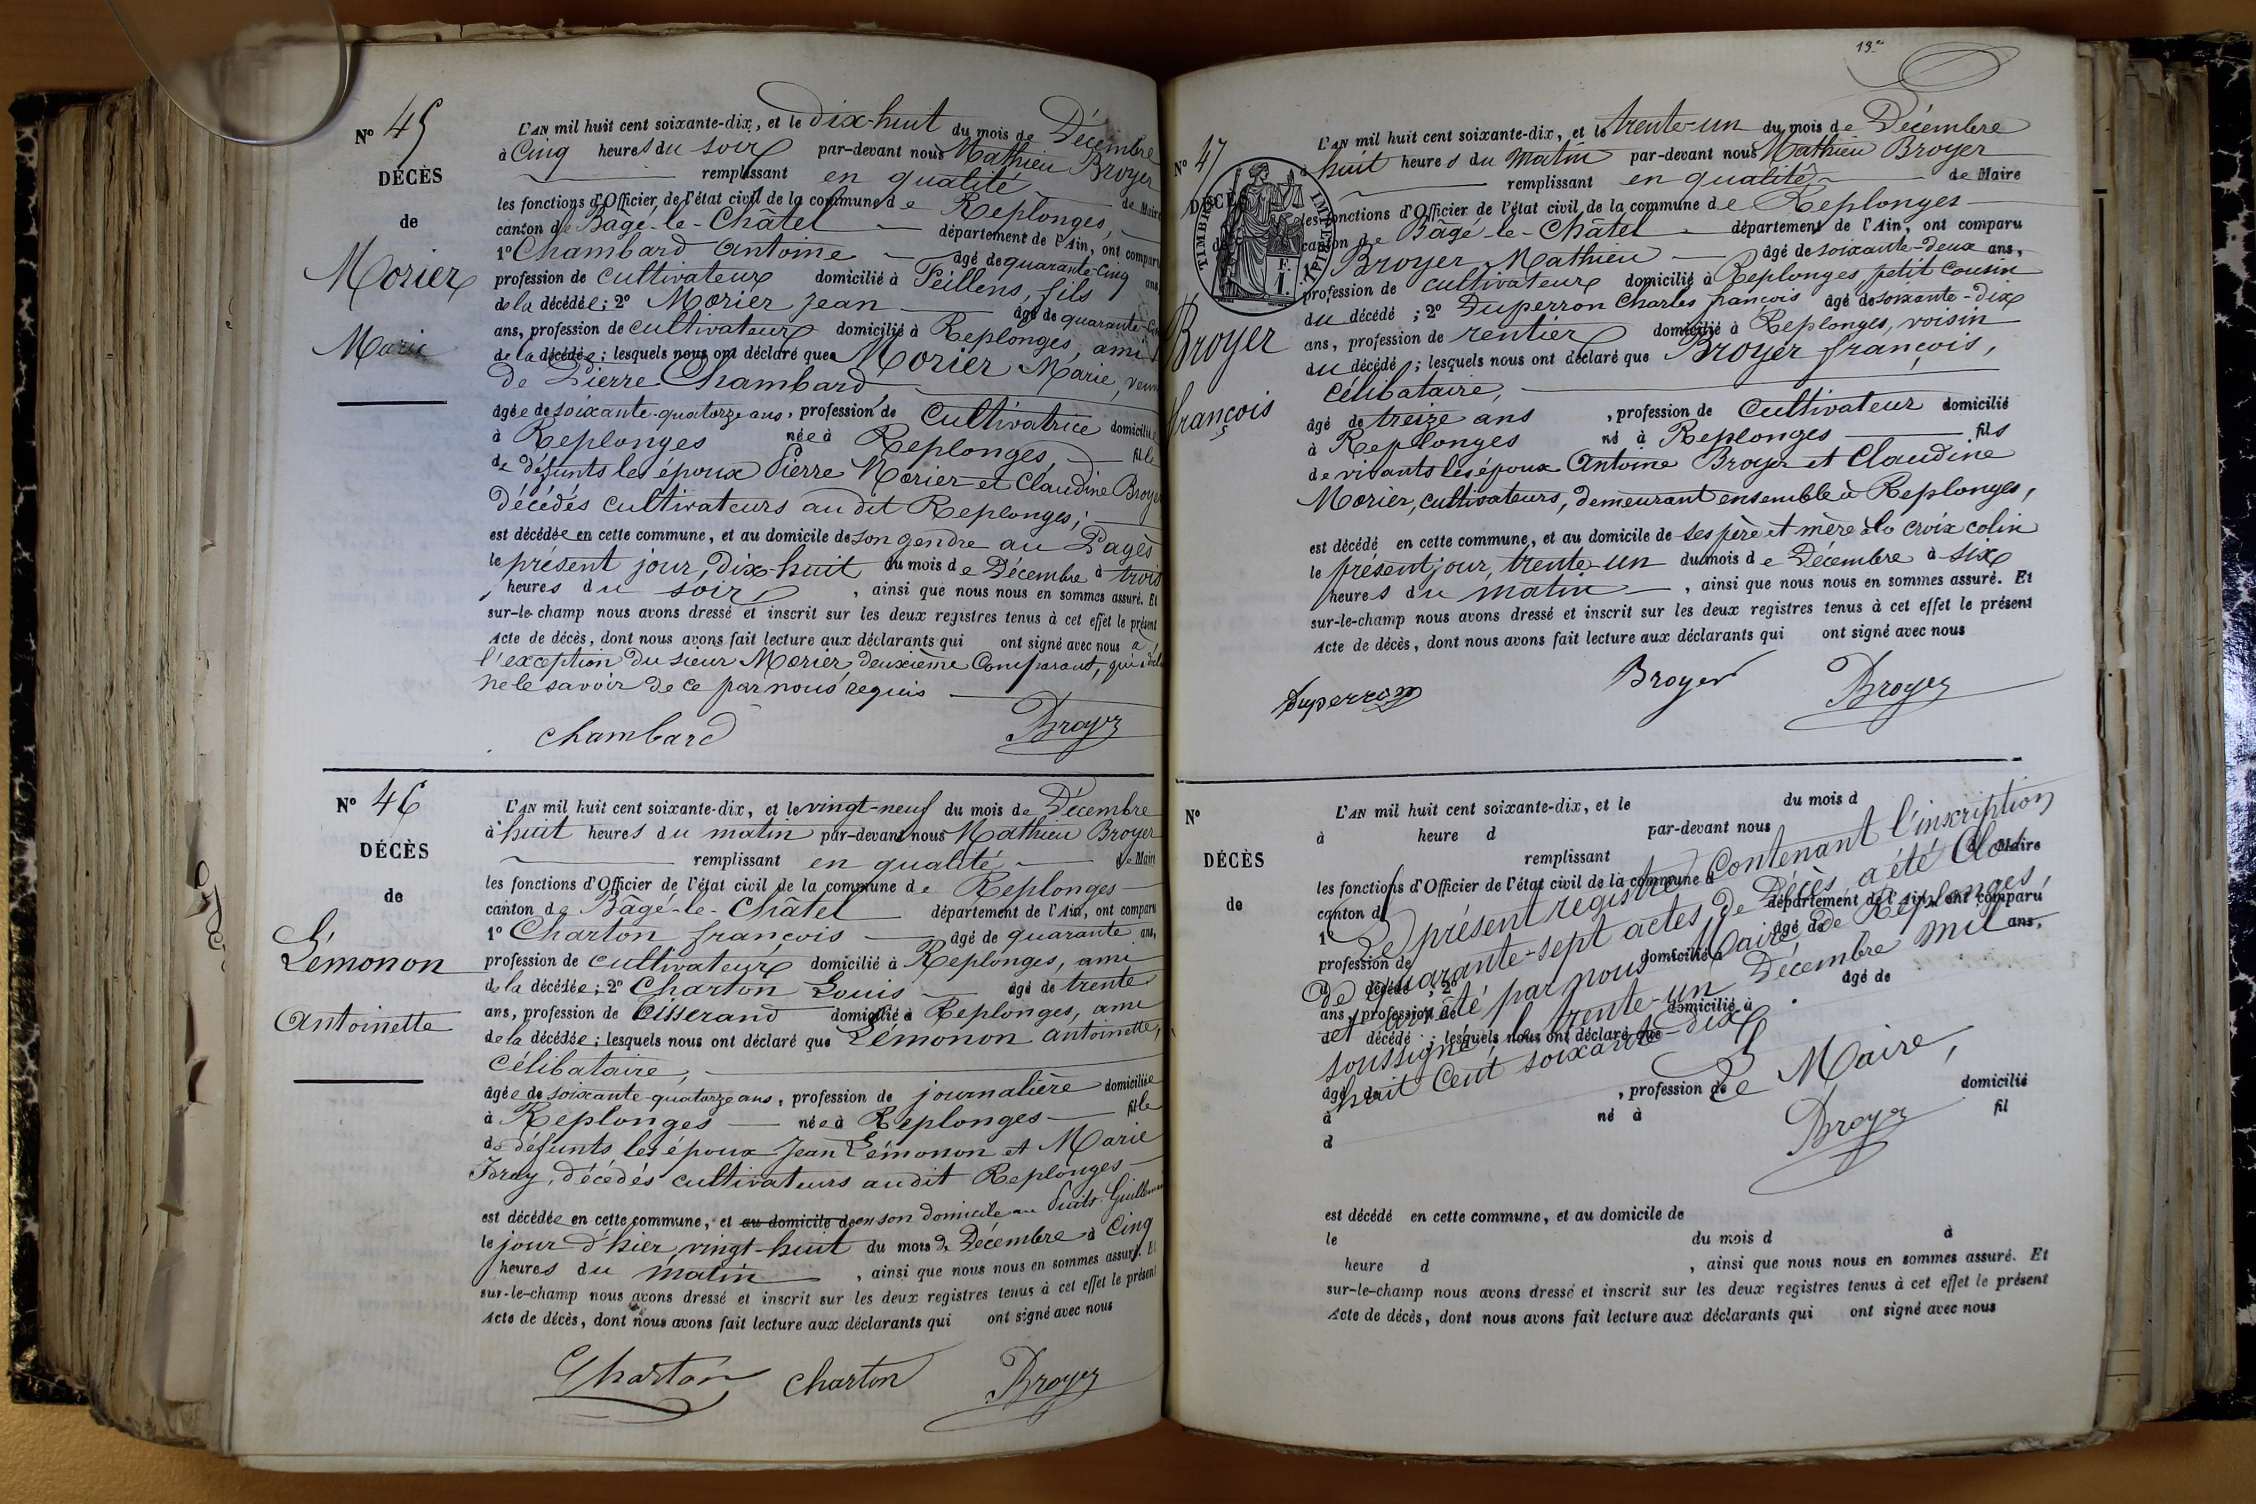 N° 45
DÉCÈS
de
Morier
Marie
L'AN mil huit cent soixante-dix, et le dix-huit du mois de Décembre
à Cinq heures du soir par-devant nous Mathieu Broyer
remplissant en qualité de Maire
les fonctions d'Officier de l'état civil de la commune de Replonges,
canton de Bâgé-le-Châtel département de l'Ain, ont comparu
1° Chambard Antoine âgé de quarante-Cinq ans
profession de cultivateur domicilié à Feillens, fils
de la décédée; 2° Morier Jean âgé de quarante-
ans, profession de cultivateur domicilié à Replonges, ami
de la décédée; lesquels nous ont déclaré que Morier Marie, veuve
de Pierre Chambard
âgée de soixante-quatorze ans, profession de Cultivatrice domiciliée
à Replonges née à Replonges fille
de défunts les époux Pierre Morier et Claudine Broyer
décédés cultivateurs au dit Replonges;
est décédée en cette commune, et au domicile de son gendre au Pagès
le présent jour, dix-huit du mois de Décembre à trois
heures du soir, ainsi que nous nous en sommes assuré. Et
sur-le-champ nous avons dressé et inscrit sur les deux registres tenus à cet effet le présent
Acte de décès, dont nous avons fait lecture aux déclarants qui ont signé avec nous à
l'exception du sieur Morier deuxième Comparant, qui a
ne le savoir de ce par nous requis
Chambard Broyer
N° 46
DÉCÈS
de
Lémonon
Antoinette
L'AN mil huit cent soixante-dix, et le vingt-neuf du mois de Décembre
à huit heures du matin par-devant nous Mathieu Broyer
remplissant en qualité de Maire
les fonctions d'Officier de l'état civil de la commune de Replonges
canton de Bâgé-le-Châtel département de l'Ain, ont comparu
1° Charton françois âgé de quarante ans,
profession de cultivateur domicilié à Replonges, ami
de la décédée; 2° Charton Louis âgé de trente
ans, profession de tisserand domicilié à Replonges, ami
de la décédée; lesquels nous ont déclaré que Lémonon Antoinette,
Célibataire,
âgée de soixante-quatorze ans, profession de journalière domiciliée
à Replonges née à Replonges fille
de défunts les époux Jean Lémonon et Marie
décédés cultivateurs au dit Replonges
est décédée en cette commune, et au domicile de en son domicile au Puits
le jour d'hier, vingt-huit du mois de Décembre à Cinq
heures du matin, ainsi que nous nous en sommes assuré. Et
sur-le-champ nous avons dressé et inscrit sur les deux registres tenus à cet effet le présent
Acte de décès, dont nous avons fait lecture aux déclarants qui ont signé avec nous
Charton Charton Broyer
N° 47
DÉCÈS
TIMBRE IMPERIAL
F. 1.
Broyer
françois
L'AN mil huit cent soixante-dix, et le trente-un du mois de Décembre
à huit heures du matin par-devant nous Mathieu Broyer
remplissant en qualité de Maire
les fonctions d'Officier de l'état civil de la commune de Replonges
canton de Bâgé-le-Châtel département de l'Ain, ont comparu
1° Broyer Mathieu âgé de soixante-deux ans,
profession de cultivateur domicilié à Replonges petit Cousin
du décédé; 2° Duperron Charles françois âgé de soixante-dix
ans, profession de rentier domicilié à Replonges, voisin
du décédé; lesquels nous ont déclaré que Broyer françois,
célibataire,
âgé de treize ans, profession de Cultivateur domicilié
à Replonges né à Replonges fils
de vivants les époux Antoine Broyer et Claudine
Morier, cultivateurs, demeurant ensemble à Replonges,
est décédé en cette commune, et au domicile de ses père et mère à la croix colin
le présent jour, trente-un du mois de Décembre à six
heures du matin, ainsi que nous nous en sommes assuré. Et
sur-le-champ nous avons dressé et inscrit sur les deux registres tenus à cet effet le présent
Acte de décès, dont nous avons fait lecture aux déclarants qui ont signé avec nous
Duperron Broyer Broyer
N°
DÉCÈS
de
L'AN mil huit cent soixante-dix, et le du mois d
à heure d par-devant nous
remplissant de Maire
les fonctions d'Officier de l'état civil de la commune d
canton d département de l'Ain, ont comparu
1° âgé de ans,
profession de domicilié à
d décédé; 2° âgé de
ans, profession de domicilié à
d décédé; lesquels nous ont déclaré que
âgé de, profession de domicilié
à né à fil
d
Le présent registre Contenant l'inscription
de quarante-sept actes de Décès a été Clos
et arrêté par nous Maire de Replonges,
soussigné, le trente-un Décembre mil
huit Cent soixante-dix
Le Maire,
Broyer
est décédé en cette commune, et au domicile de
le du mois d à
heure d, ainsi que nous nous en sommes assuré. Et
sur-le-champ nous avons dressé et inscrit sur les deux registres tenus à cet effet le présent
Acte de décès, dont nous avons fait lecture aux déclarants qui ont signé avec nous